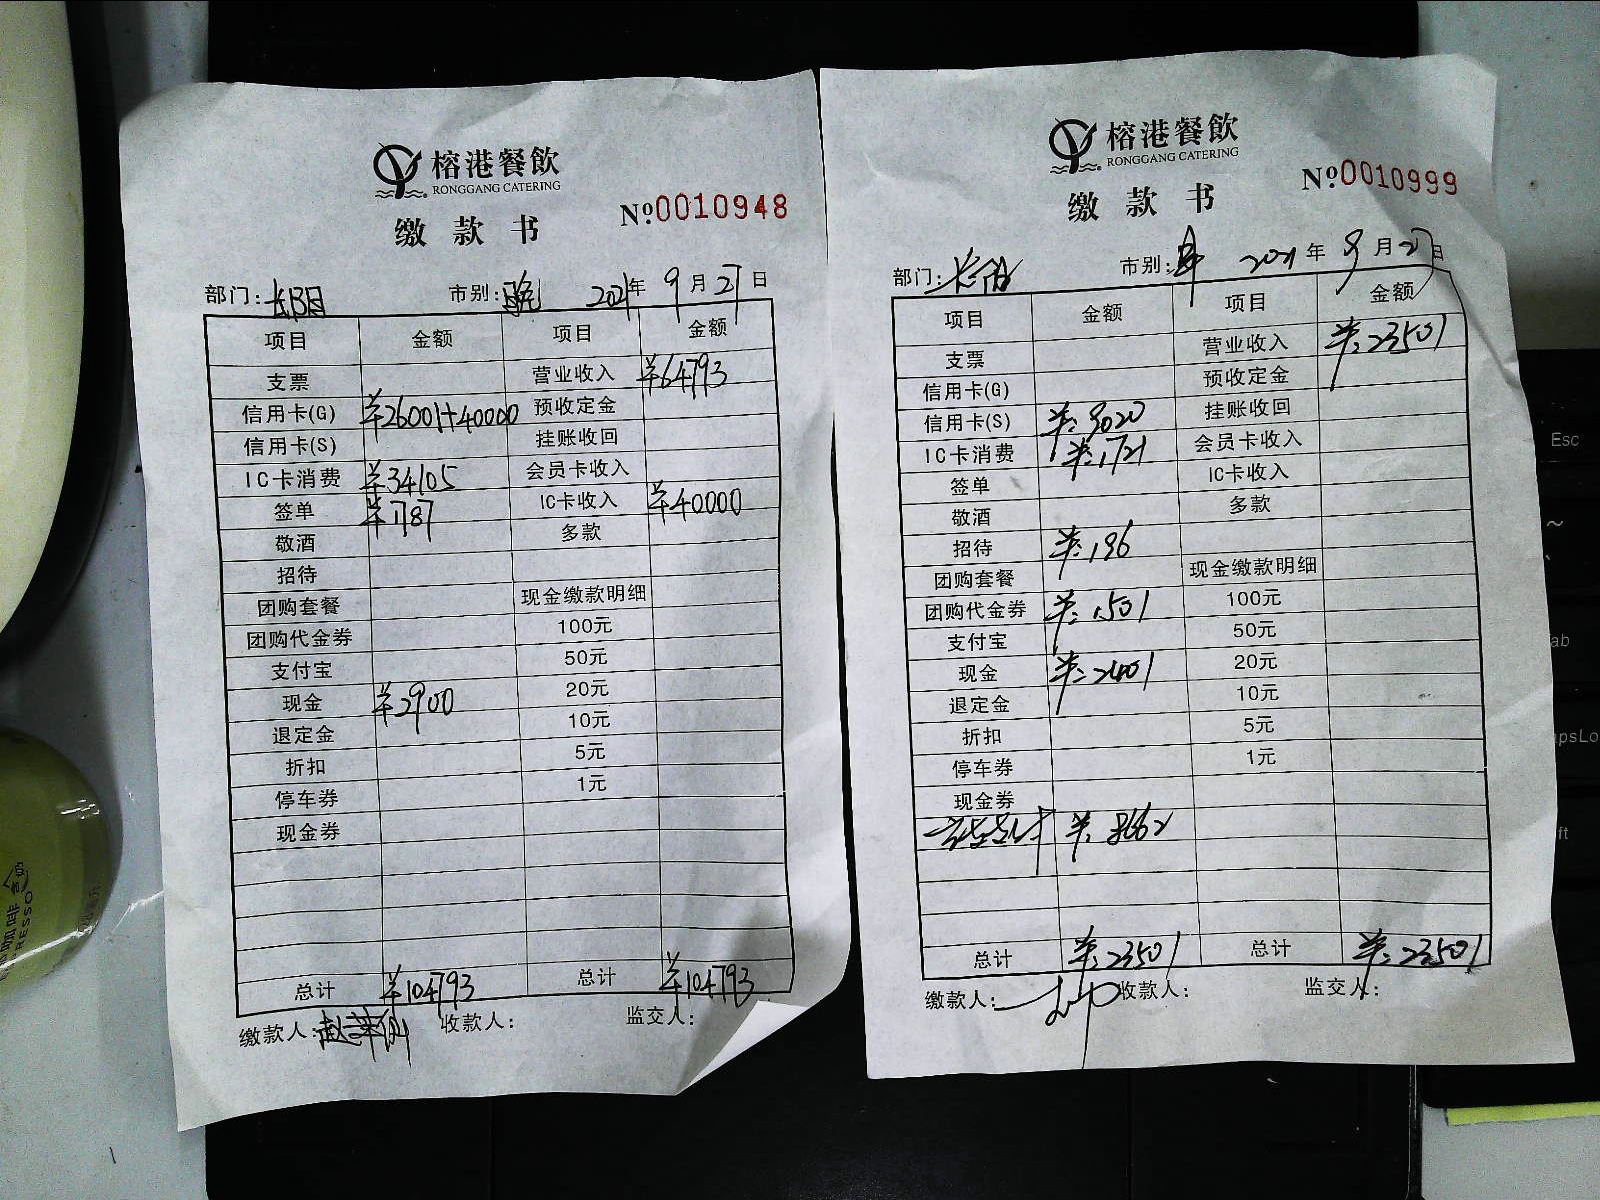 榕港餐飲
RONGGANG CATERING
缴款书
No.0010948
部门: 市别:晚 2021年9月27日
项目 金额 项目 金额
支票 营业收入 ¥64793
信用卡(G) ¥26001+40000 预收定金
信用卡(S) 挂账收回
IC卡消费 ¥34105 会员卡收入
签单 ¥1787 IC卡收入 ¥40000
敬酒 多款
招待
团购套餐 现金缴款明细
团购代金券 100元
支付宝 50元
现金 ¥2900 20元
退定金 10元
折扣 5元
停车券 1元
现金券
总计 ¥104793 总计 ¥104793
缴款人: 收款人: 监交人:
榕港餐飲
RONGGANG CATERING
缴款书
No.0010999
部门: 市别: 2021年9月27日
项目 金额 项目 金额
支票 营业收入 ¥:23501
信用卡(G) 预收定金
信用卡(S) ¥:9020 挂账收回
IC卡消费 ¥:1721 会员卡收入
签单 IC卡收入
敬酒 多款
招待 ¥:196
团购套餐 现金缴款明细
团购代金券 ¥:1501 100元
支付宝 50元
现金 ¥:2401 20元
退定金 10元
折扣 5元
停车券 1元
现金券
¥:8662
总计 ¥:23501 总计 ¥:23501
缴款人: 收款人: 监交人:
Esc
~